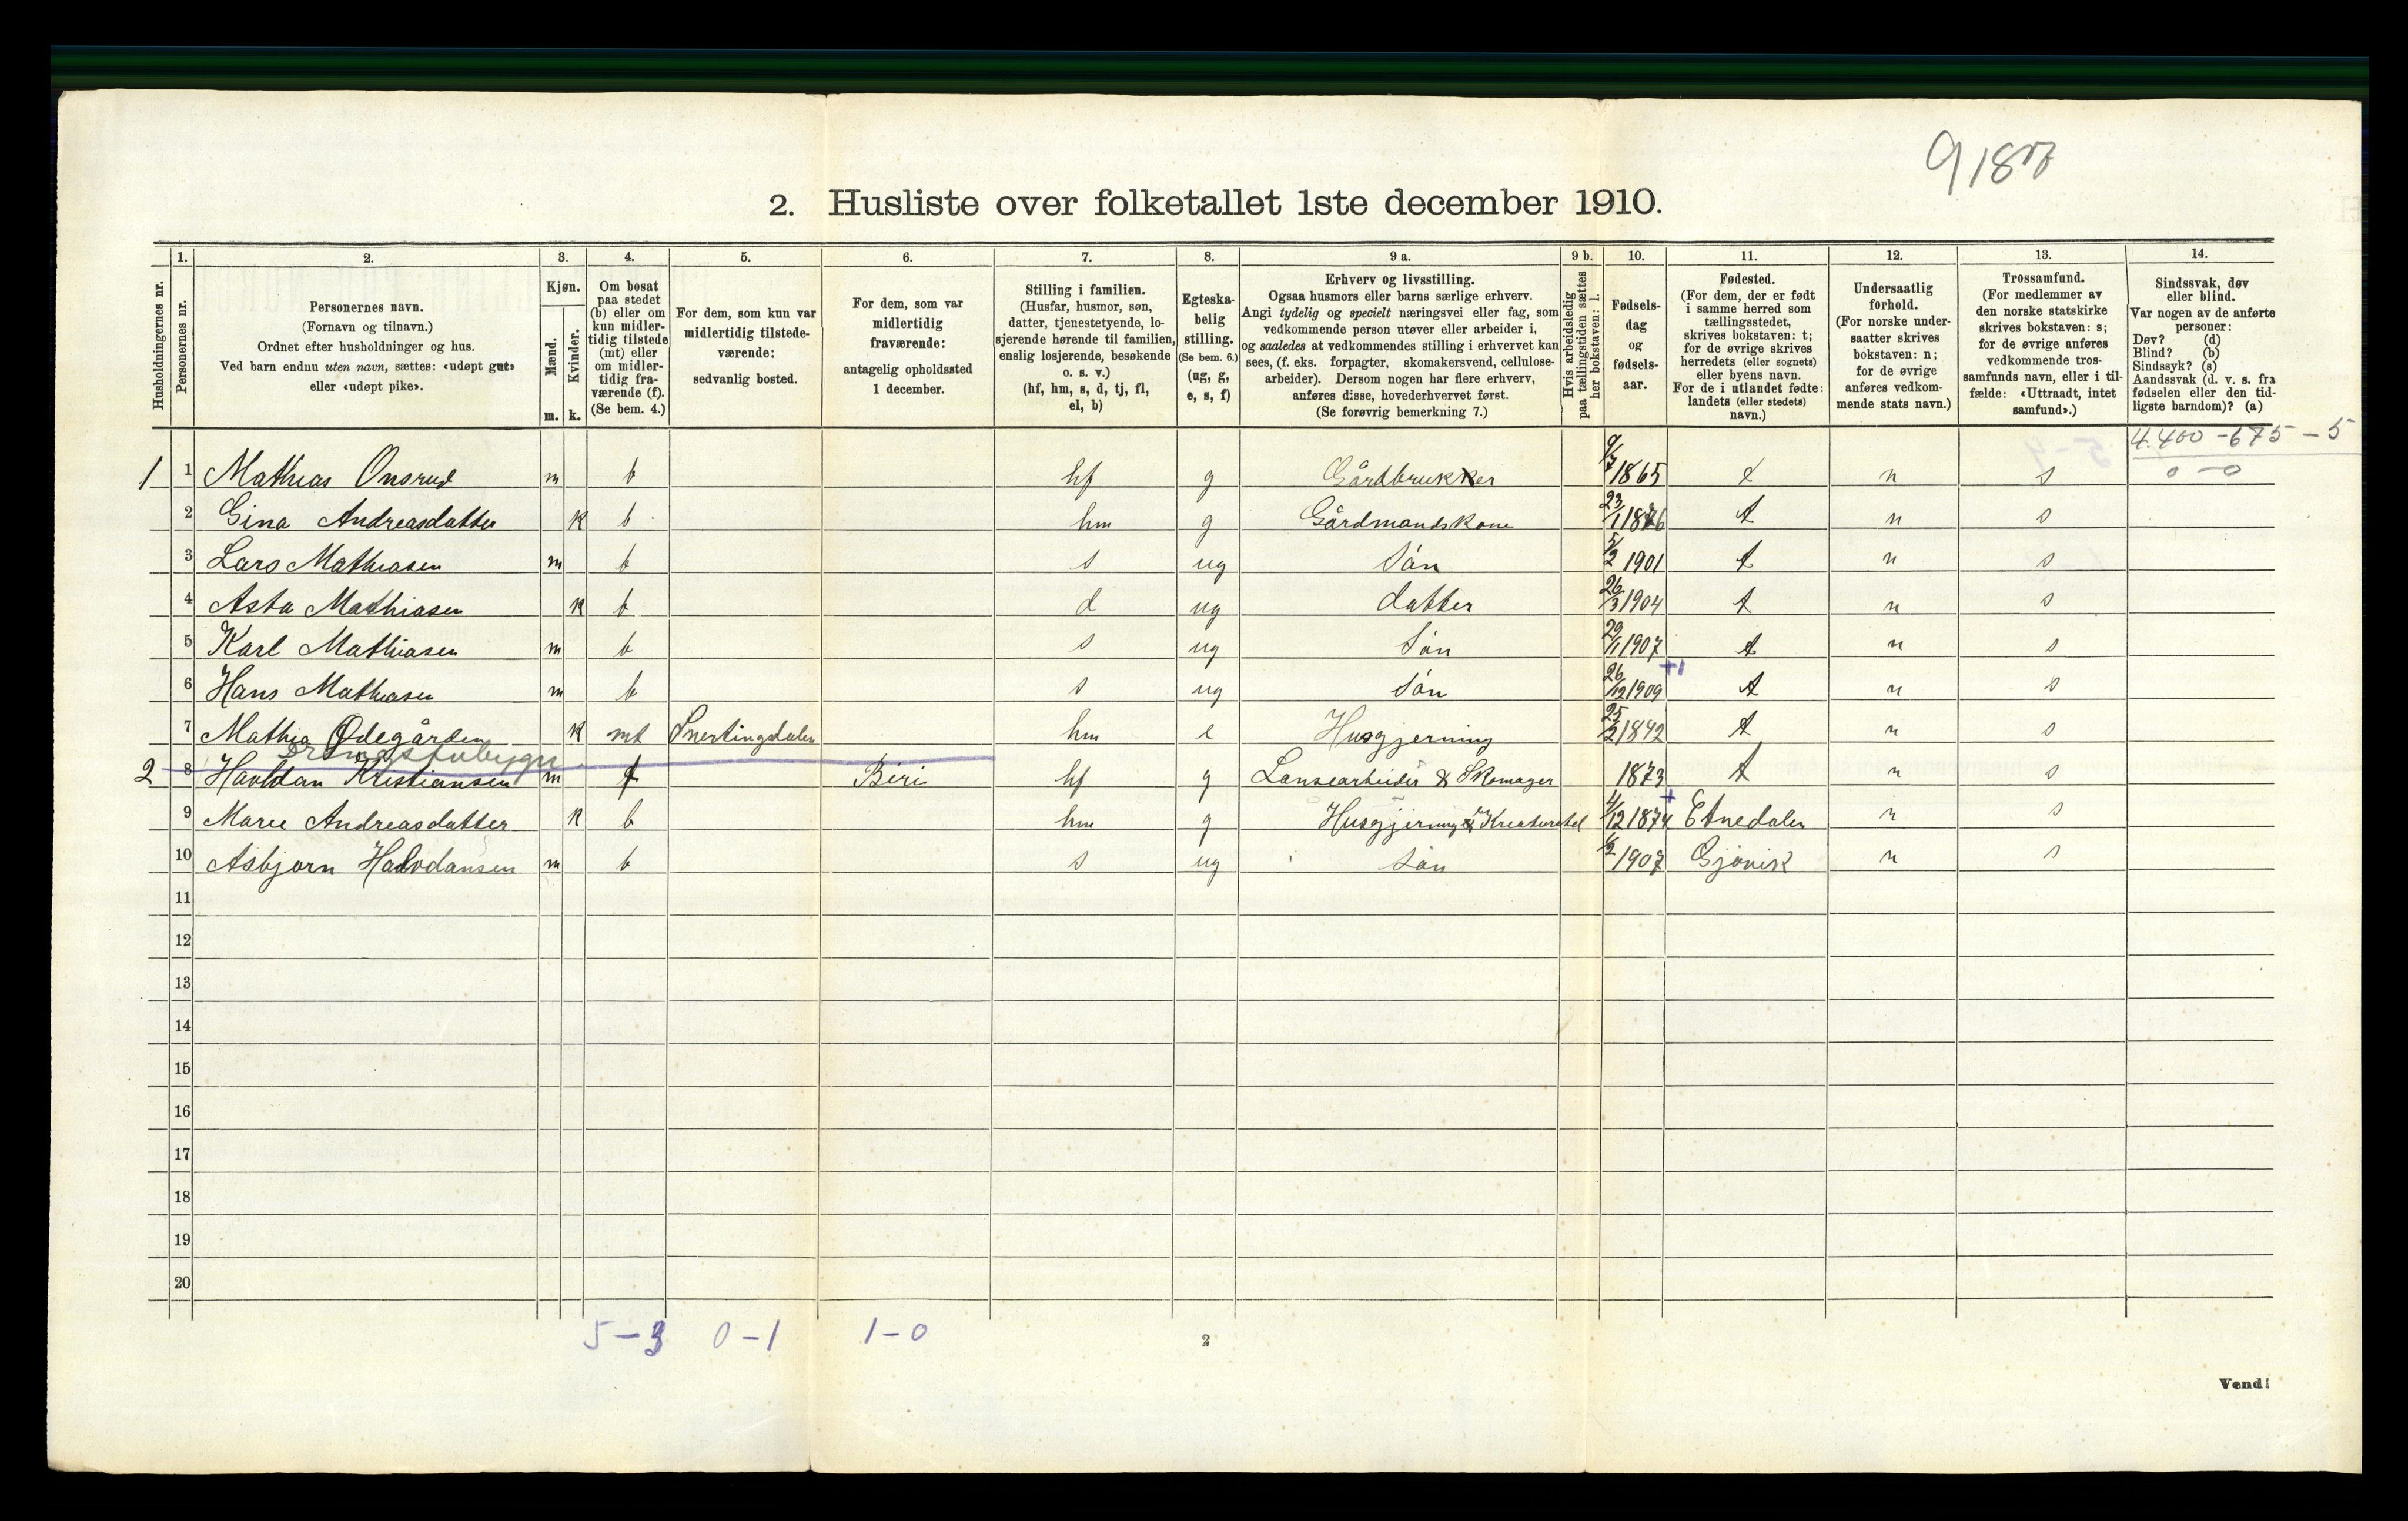 9187
2. Husliste over folketallet 1ste december 1910.
Husholdningernes nr.
1. Personernes nr.
2. Personernes navn. (Fornavn og tilnavn.) Ordnet efter husholdninger og hus. Ved barn endnu uten navn, sættes: «udøpt gut» eller «udøpt pike».
3. Kjøn. Mænd. m. Kvinder. k.
4. Om bosat paa stedet (b) eller om kun midlertidig tilstede (mt) eller om midlertidig fraværende (f). (Se bem. 4.)
5. For dem, som kun var midlertidig tilstedeværende: sedvanlig bosted.
6. For dem, som var midlertidig fraværende: antagelig opholdssted 1 december.
7. Stilling i familien. (Husfar, husmor, søn, datter, tjenestetyende, losjerende hørende til familien, enslig losjerende, besøkende o. s. v.) (hf, hm, s, d, tj, fl, el, b)
8. Egteskabelig stilling. (Se bem. 6.) (ug, g, e, s, f)
9 a. Erhverv og livsstilling. Ogsaa husmors eller barns særlige erhverv. Angi tydelig og specielt næringsvei eller fag, som vedkommende person utøver eller arbeider i, og saaledes at vedkommendes stilling i erhvervet kan sees, (f. eks. forpagter, skomakersvend, cellulosearbeider). Dersom nogen har flere erhverv, anføres disse, hovederhvervet først. (Se forøvrig bemerkning 7.)
9 b. Hvis arbeidsledig paa tællingstiden sættes her bokstaven: l.
10. Fødselsdag og fødselsaar.
11. Fødested. (For dem, der er født i samme herred som tællingsstedet, skrives bokstaven: t; for de øvrige skrives herredets (eller sognets) eller byens navn. For de i utlandet fødte: landets (eller stedets) navn.)
12. Undersaatlig forhold. (For norske undersaatter skrives bokstaven: n; for de øvrige anføres vedkommende stats navn.)
13. Trossamfund. (For medlemmer av den norske statskirke skrives bokstaven: s; for de øvrige anføres vedkommende trossamfunds navn, eller i tilfælde: «Uttraadt, intet samfund».)
14. Sindssvak, døv eller blind. Var nogen av de anførte personer: Døv? (d) Blind? (b) Sindssyk? (s) Aandssvak (d. v. s. fra fødselen eller den tidligste barndom)? (a)
4.400 - 675 - 5
0 - 0
1 1 Mathias Onsrud m b hf g Gårdbrukker 9/7 1865 t n s
2 Gina Andreasdatter k b hm g Gårdmandskone 23/1 1876 t n s
3 Lars Mathiasen m b s ug Søn 5/2 1901 t n s
4 Asta Mathiasen k b d ug datter 26/3 1904 t n s
5 Karl Mathiasen m b s ug Søn 29/1 1907 t n s
+1
6 Hans Mathiasen m b s ug Søn 26/12 1909 t n s
7 Mathia Ødegården k mt Snertingdalen hm e Husgjerning 25/2 1842 t n s
2 8 Havldan Kristiansen m f Biri hf g Lansearbeider & Skomager 1873 t n s
+
9 Marie Andreasdatter k b hm g Husgjerning & Kreaturstel 4/12 1874 Etnedalen n s
10 Asbjørn Halvdansen m b s ug Søn 1/2 1907 Gjøvik n s
11
12
13
14
15
16
17
18
19
20
5-3 0-1 1-0
2
Vend!